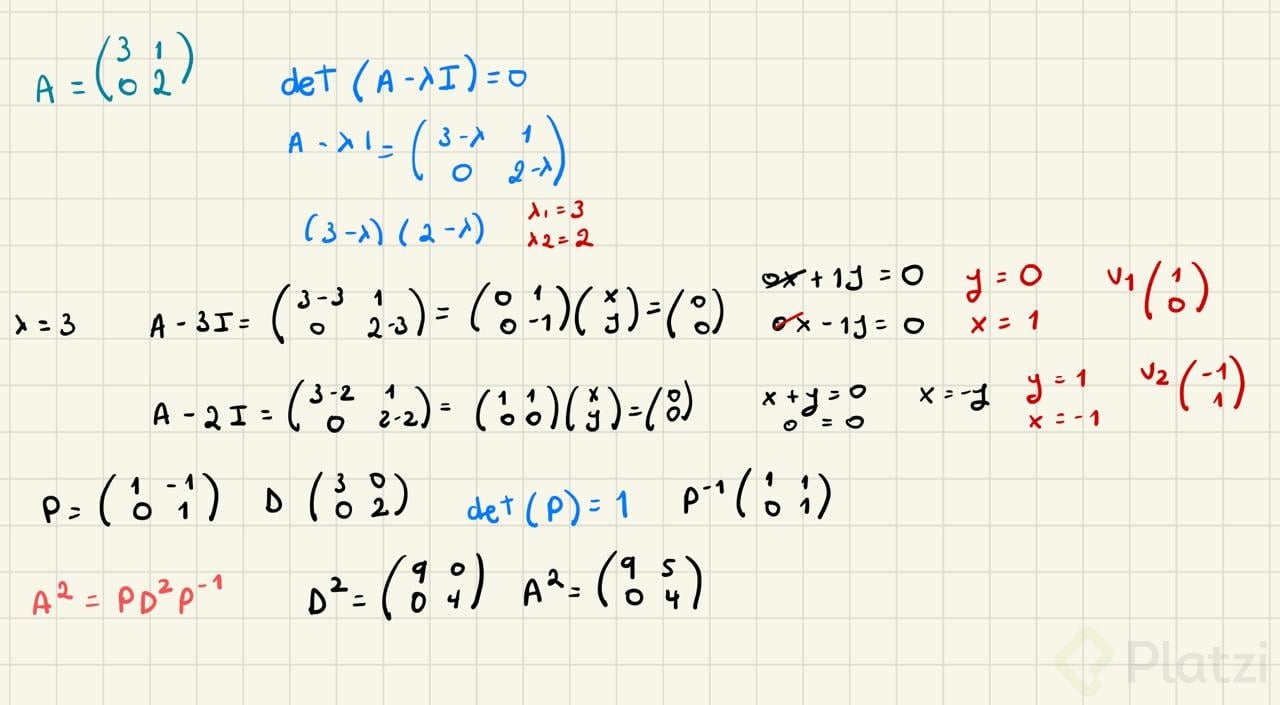 A = (3 1 0 2)
det (A - λI) = 0
A - λI = (3-λ 1 0 2-λ)
(3-λ) (2-λ) λ1 = 3 λ2 = 2
λ = 3 A - 3I = (3-3 1 0 2-3) = (0 1 0 -1)(x y) = (0 0) 0x + 1y = 0 0x - 1y = 0 y = 0 x = 1 v1 (1 0)
A - 2I = (3-2 1 0 2-2) = (1 1 0 0)(x y) = (0 0) x + y = 0 0 = 0 x = -y y = 1 x = -1 v2 (-1 1)
P = (1 -1 0 1) D (3 0 0 2) det (P) = 1 P⁻¹ (1 1 0 1)
A² = PD²P⁻¹ D² = (9 0 0 4) A² = (9 5 0 4)
Platzi